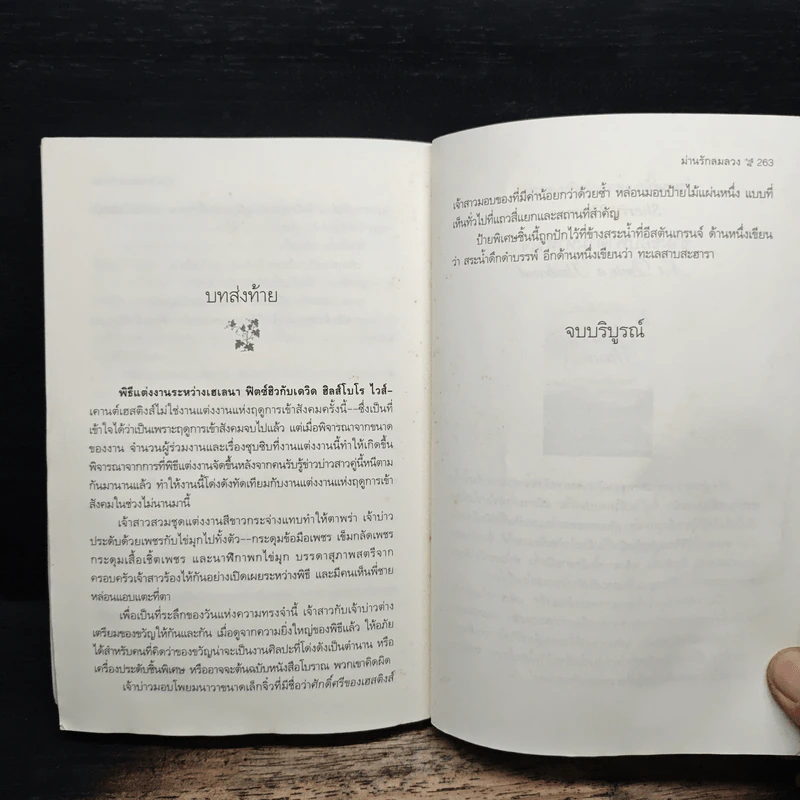 บทส่งท้าย
พิธีแต่งงานระหว่างเฮเลนา ฟิตซ์ฮิวกับเดวิด ฮิลส์โบโร ไวส์-
เคานต์เฮสติงส์ไม่ใช่งานแต่งงานแห่งฤดูการเข้าสังคมครั้งนี้--ซึ่งเป็นที่
เข้าใจได้ว่าเป็นเพราะฤดูการเข้าสังคมจบไปแล้ว แต่เมื่อพิจารณาจากขนาด
ของงาน จำนวนผู้ร่วมงานและเรื่องซุบซิบที่งานแต่งงานนี้ทำให้เกิดขึ้น
พิจารณาจากการที่พิธีแต่งงานจัดขึ้นหลังจากคนรับรู้ข่าวบ่าวสาวคู่นี้หนีตาม
กันมานานแล้ว ทำให้งานนี้โด่งดังทัดเทียมกับงานแต่งงานแห่งฤดูการเข้า
สังคมในช่วงไม่นานมานี้
เจ้าสาวสวมชุดแต่งงานสีขาวกระจ่างแทบทำให้ตาพร่า เจ้าบ่าว
ประดับด้วยเพชรกับไข่มุกไปทั้งตัว--กระดุมข้อมือเพชร เข็มกลัดเพชร
กระดุมเสื้อเชิ้ตเพชร และนาฬิกาพกไข่มุก บรรดาสุภาพสตรีจาก
ครอบครัวเจ้าสาวร้องไห้กันอย่างเปิดเผยระหว่างพิธี และมีคนเห็นพี่ชาย
หล่อนแอบแตะที่ตา
เพื่อเป็นที่ระลึกของวันแห่งความทรงจำนี้ เจ้าสาวกับเจ้าบ่าวต่าง
เตรียมของขวัญให้กันและกัน เมื่อดูจากความยิ่งใหญ่ของพิธีแล้ว ให้อภัย
ได้สำหรับคนที่คิดว่าของขวัญน่าจะเป็นงานศิลปะที่โด่งดังเป็นตำนาน หรือ
เครื่องประดับชิ้นพิเศษ หรืออาจจะต้นฉบับหนังสือโบราณ พวกเขาคิดผิด
เจ้าบ่าวมอบโพยมนาวาขนาดเล็กจิ๋วที่มีชื่อว่าศักดิ์ศรีของเฮสติงส์
ม่านรักลมลวง 263
เจ้าสาวมอบของที่มีค่าน้อยกว่าด้วยซ้ำ หล่อนมอบป้ายไม้แผ่นหนึ่ง แบบที่
เห็นทั่วไปที่แถวสี่แยกและสถานที่สำคัญ
ป้ายพิเศษชิ้นนี้ถูกปักไว้ที่ข้างสระน้ำที่อีสตันเกรนจ์ ด้านหนึ่งเขียน
ว่า สระน้ำดึกดำบรรพ์ อีกด้านหนึ่งเขียนว่า ทะเลสาบสะฮารา
จบบริบูรณ์